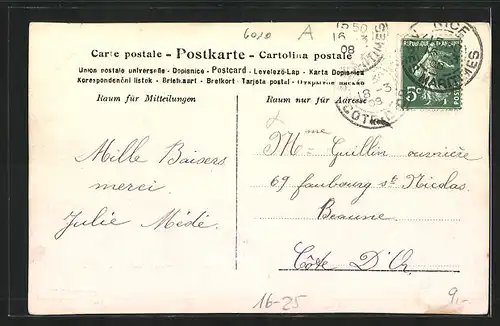 6010 A
Carte postale - Postkarte - Cartolina postale
Union postale universelle - Dopisnice - Postcard - Levelező-Lap - Karta Dopisnica
Korespondenční listek - Briefkaart - Brefkort - Tarjeta postal
Raum für Mitteilungen
Raum nur für Adresse
NICE
MARITIMES
18-3
08
CÔTE
REPUBLIQUE FRANÇAISE
5c
POSTES
Mille Baisers
merci
Julie Médé
Mme Guillin ouvrière
69 faubourg st Nicolas
Beaune
Côte D'Or
16-25
9,-